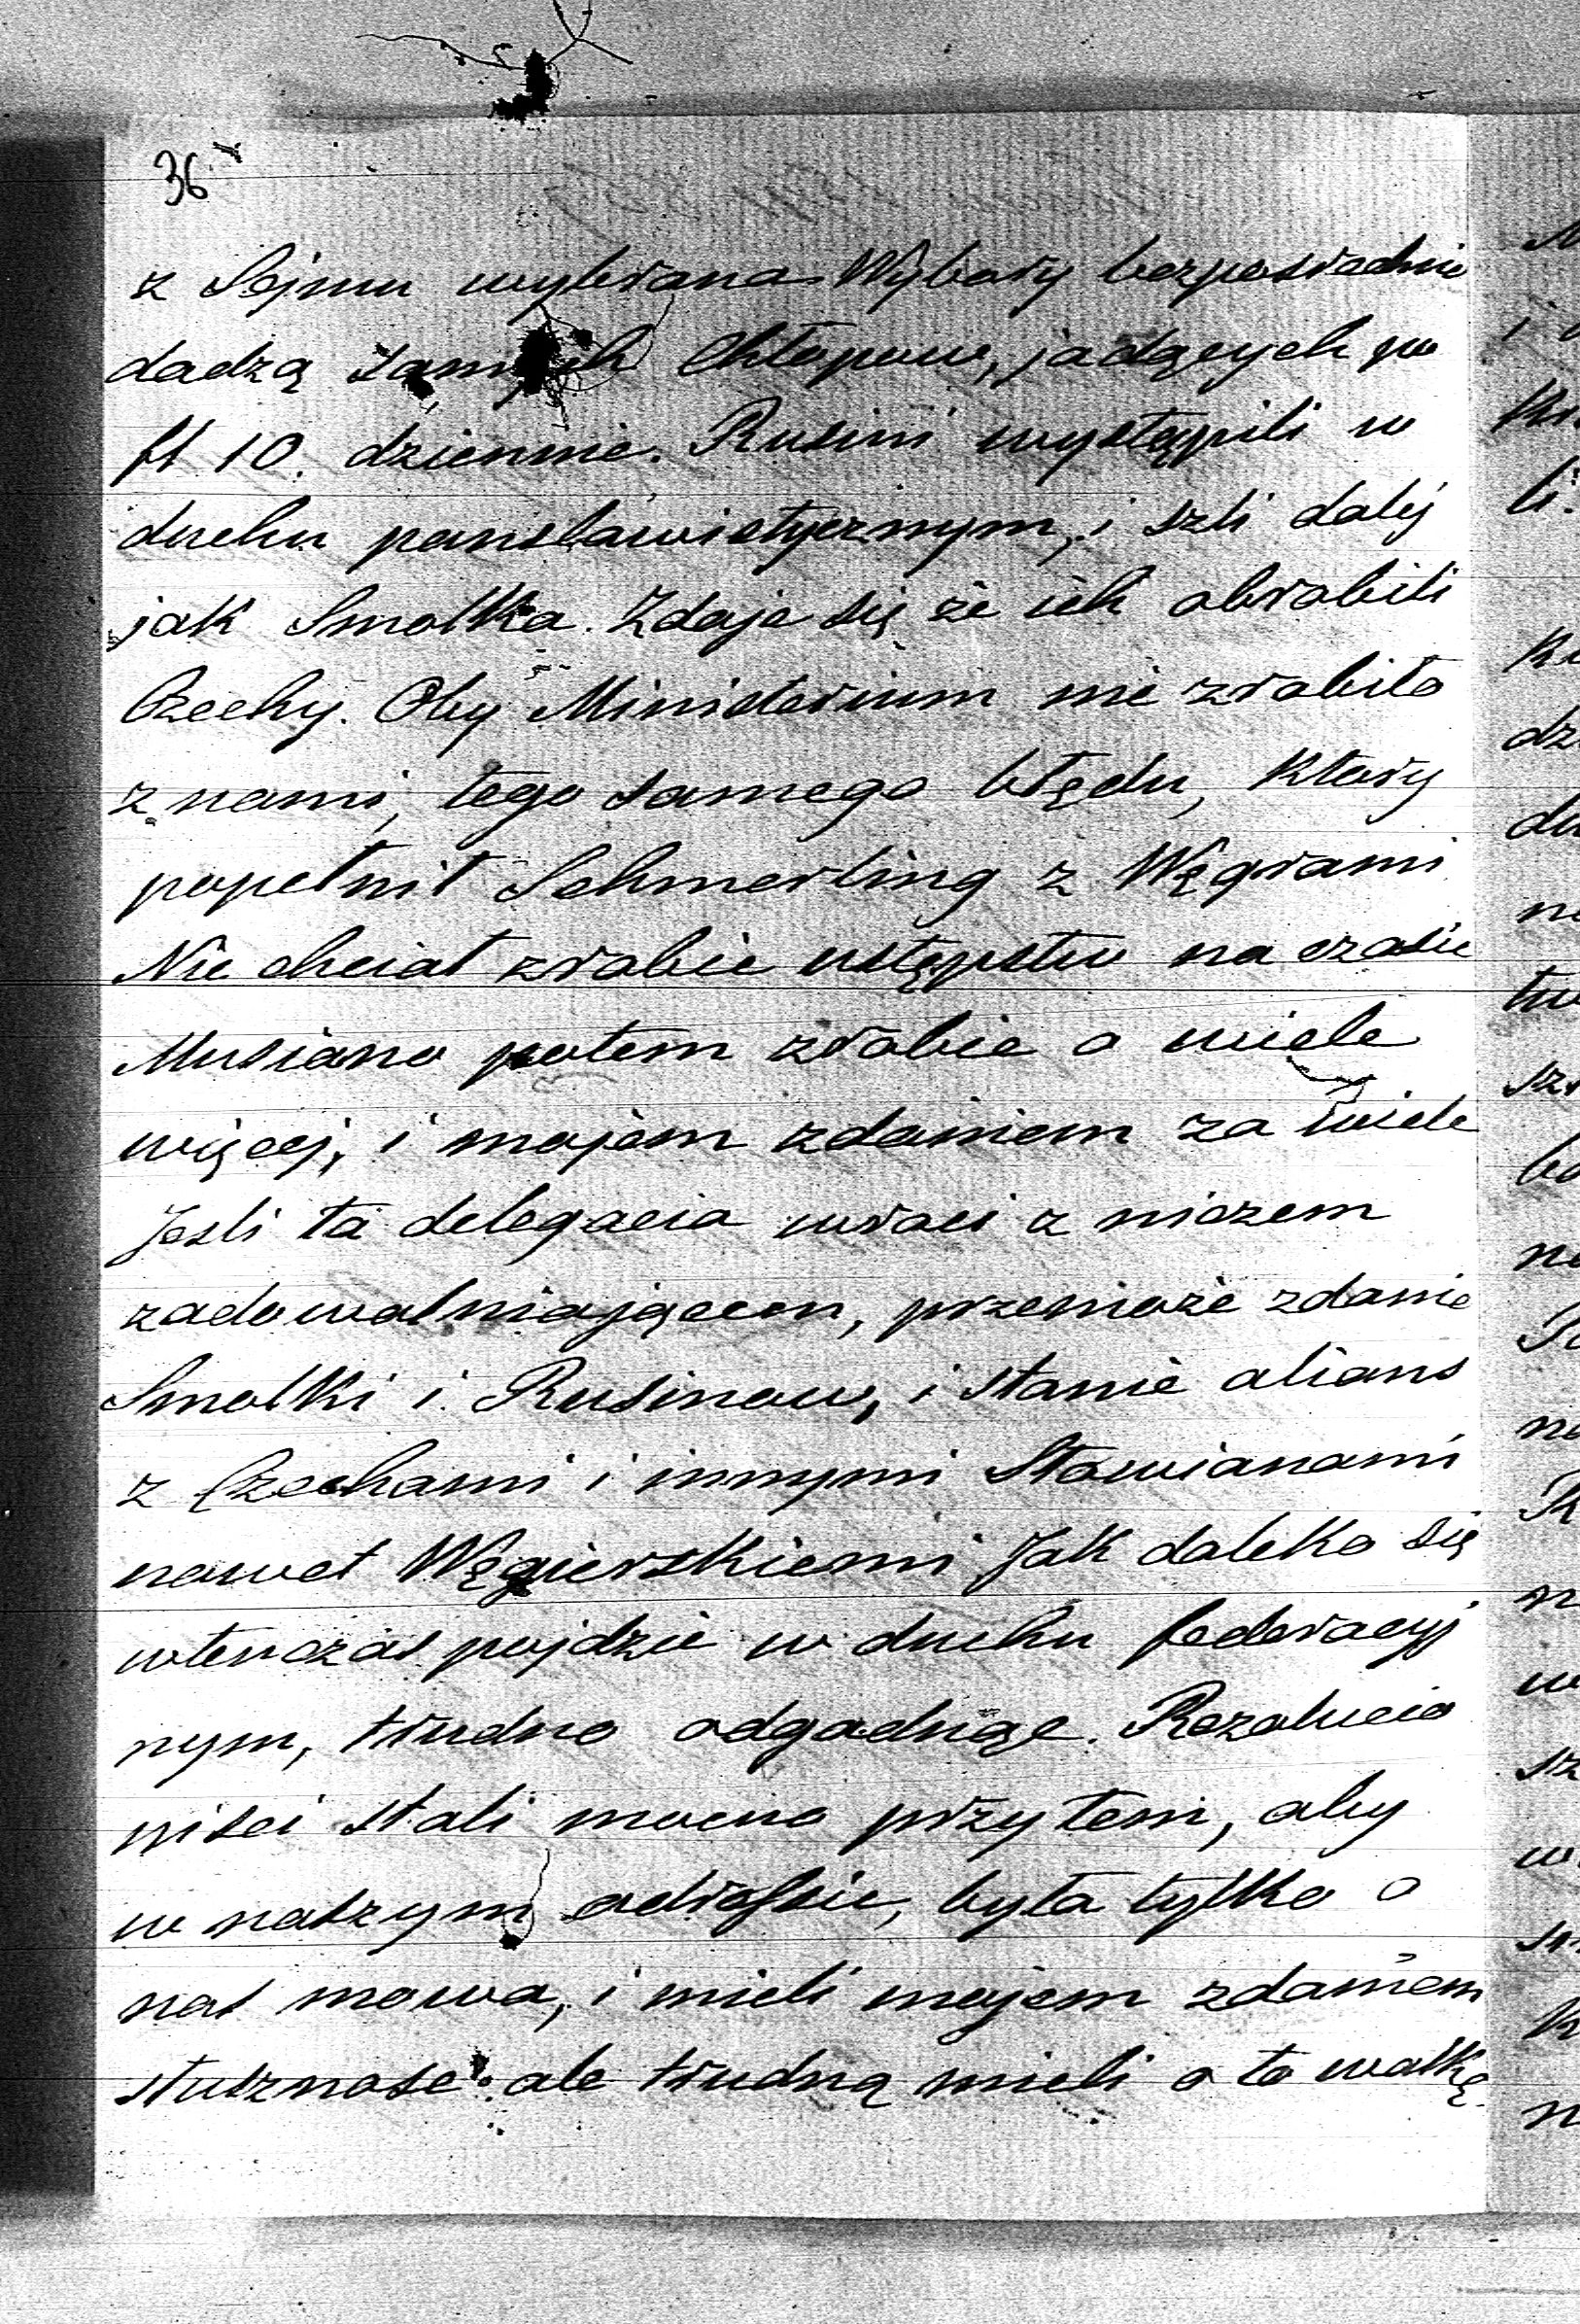 36
z Sejmu wybrana. Wybory bezposrednie
dadzą samych Chłopow, jadących po
fl 10. dziennie. Rusini wystąpili w
duchu panslawistycznym, i szli daléj
jak Smolka. Zdaje się że ich obrobili
Czechy. Oby Ministerium nie zrobiło
z nami, tego samego błędu, ktory
popełnił Schmerling z Węgrami
Nie chciał zrobic ustępstw na czasie
Musiano potem zrobic o wiele
więcej, i mojem zdaniem za wiele
Jesli ta delegacia wroci z niczem
zadowalniającem, przemoże zdanie
Smolki i Rusinow, i stanie alians
z Czechami i innymi Słowianami
nawet Węgierskiemi Jak daleko się
wtenczas pojdzie w duchu federacyj
nym, trudno odgadnąć. Rezolucio
nisci stali mocno przy tem, aby
w naszym adressie, była tylko o
nas mowa, i mieli mojem zdaniem
słusznosc: ale trudną mieli o to walkę